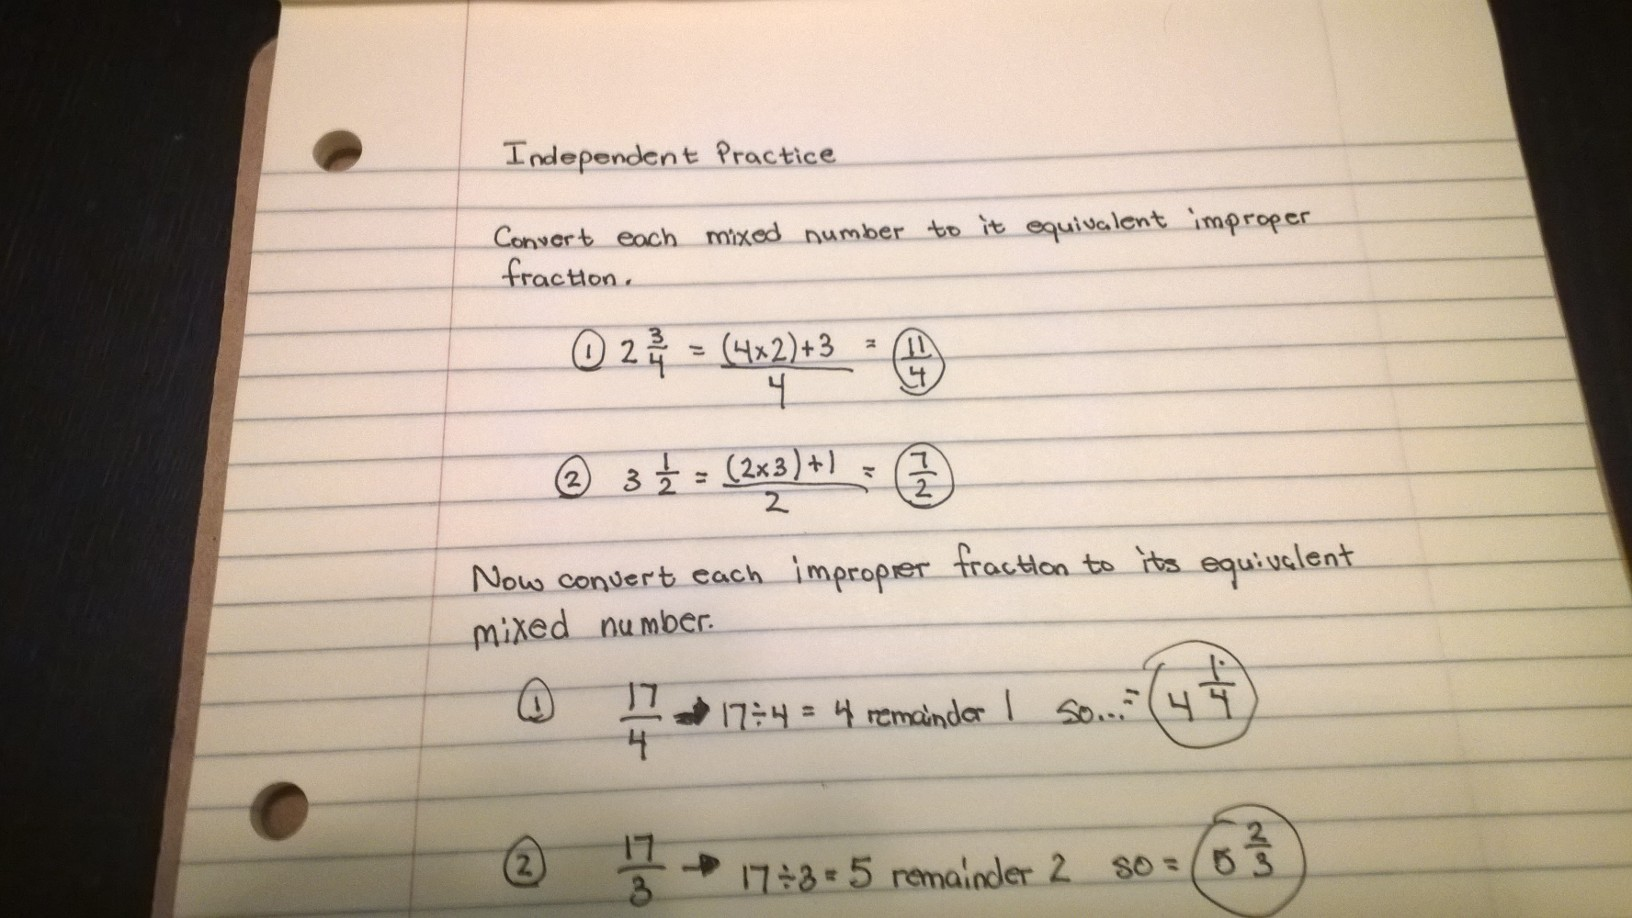 Independent Practice
Convert each mixed number to it equivalent improper
fraction.
① 2 3/4 = (4×2)+3 / 4 = 11/4
② 3 1/2 = (2×3)+1 / 2 = 7/2
Now convert each improper fraction to its equivalent
mixed number.
① 17/4 → 17÷4 = 4 remainder 1 so...= 4 1/4
② 17/3 → 17÷3 = 5 remainder 2 so = 5 2/3